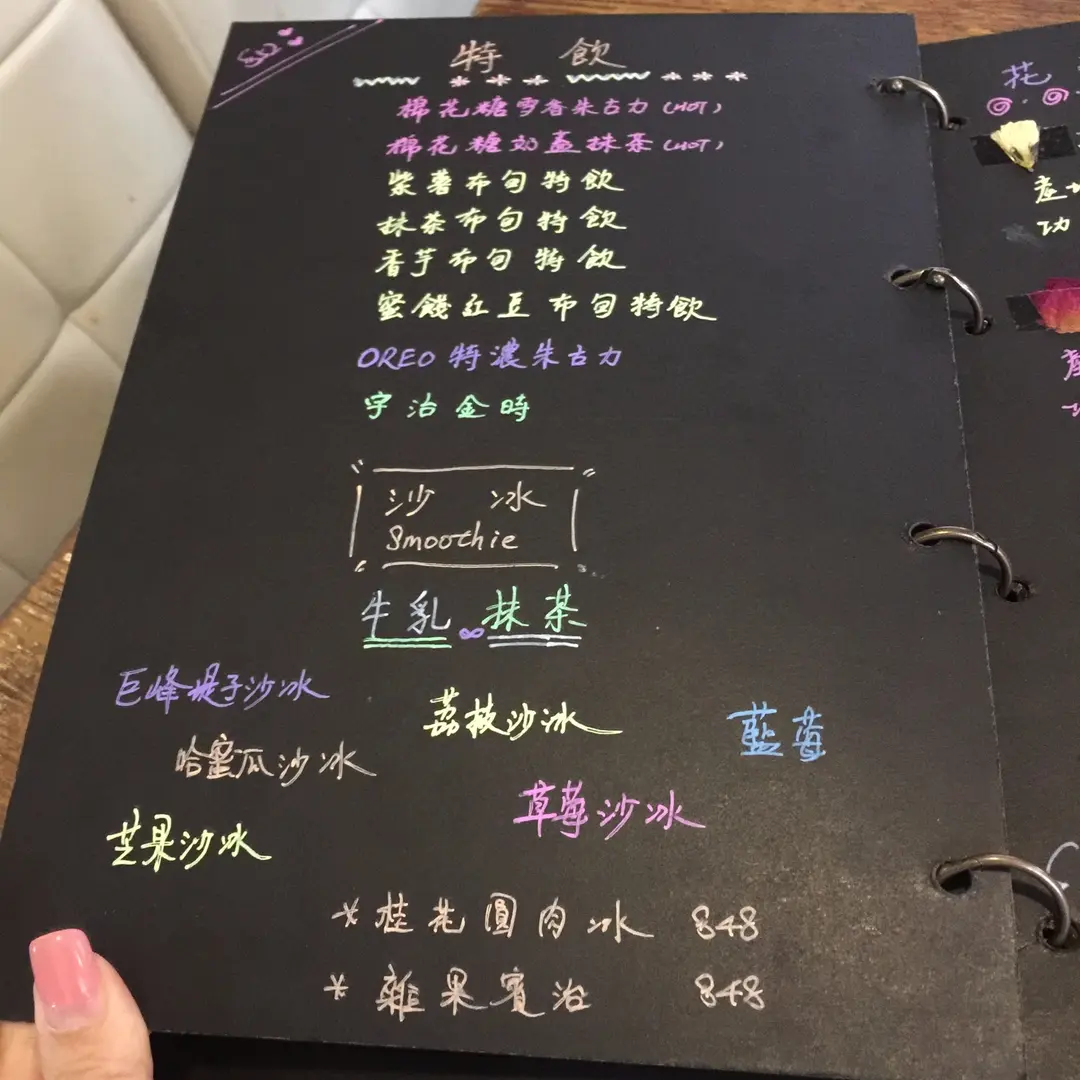 特飲
棉花糖雪香朱古力 (HOT)
棉花糖奶蓋抹茶 (HOT)
紫薯布甸特飲
抹茶布甸特飲
香芋布甸特飲
蜜餞紅豆布甸特飲
OREO特濃朱古力
宇治金時
沙冰
Smoothie
牛乳∞抹茶
巨峰提子沙冰
荔枝沙冰
藍莓
哈蜜瓜沙冰
草莓沙冰
芒果沙冰
*桂花圓肉冰 $48
*雜果賓治 $48
花
功